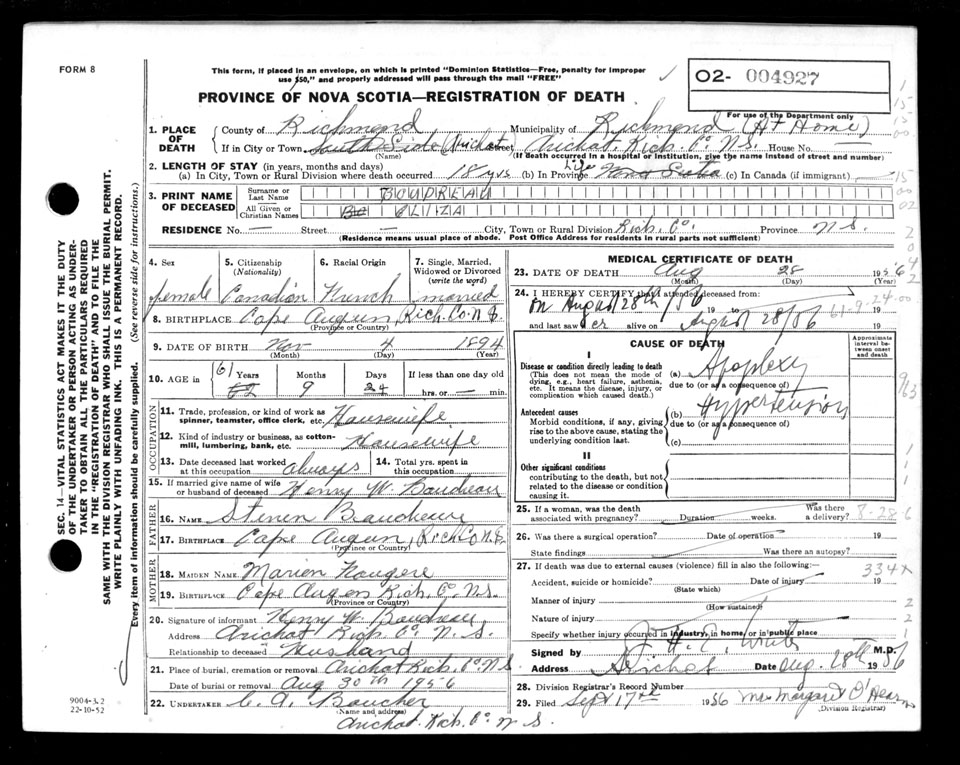 FORM 8
This form, if placed in an envelope, on which is printed "Dominion Statistics—Free, penalty for improper
use $50," and properly addressed will pass through the mail "FREE"
O2- 004927
For use of the Department only
PROVINCE OF NOVA SCOTIA—REGISTRATION OF DEATH
1. PLACE OF DEATH
County of Richmond Municipality of Richmond (At Home)
If in City or Town South Side Arichat Street Arichat, Rich. Co. N.S. House No. —
(Name) (If death occurred in a hospital or institution, give the name instead of street and number)
2. LENGTH OF STAY (in years, months and days)
(a) In City, Town or Rural Division where death occurred 18 yrs (b) In Province Life Nova Scotia (c) In Canada (if immigrant) —
3. PRINT NAME OF DECEASED
Surname or Last Name BOUDREAU
All Given or Christian Names ELIZA
RESIDENCE No. — Street — City, Town or Rural Division Rich. Co. Province N.S.
(Residence means usual place of abode. Post Office Address for residents in rural parts not sufficient)
4. Sex
female
5. Citizenship (Nationality)
Canadian
6. Racial Origin
French
7. Single, Married, Widowed or Divorced (write the word)
married
8. BIRTHPLACE Cape Auguet, Rich. Co. N.S.
(Province or Country)
9. DATE OF BIRTH Nov 4 1894
(Month) (Day) (Year)
10. AGE in 61 Years 9 Months 24 Days If less than one day old hrs. or — min.
OCCUPATION
11. Trade, profession, or kind of work as spinner, teamster, office clerk, etc. Housewife
12. Kind of industry or business, as cotton-mill, lumbering, bank, etc. Housewife
13. Date deceased last worked at this occupation always
14. Total yrs. spent in this occupation
15. If married give name of wife or husband of deceased Henry W. Boudreau
FATHER
16. NAME
17. BIRTHPLACE Cape Auguet, Rich. Co. N.S.
(Province or Country)
MOTHER
18. MAIDEN NAME Fougere
19. BIRTHPLACE Cape Auguet Rich. Co. N.S.
(Province or Country)
20. Signature of informant Henry W. Boudreau
Address Arichat Rich. Co. N.S.
Relationship to deceased Husband
21. Place of burial, cremation or removal Arichat Rich. Co. N.S.
Date of burial or removal Aug 30th 1956
22. UNDERTAKER C. A. Boucher
(Name and address)
Arichat, Rich. Co. N.S.
MEDICAL CERTIFICATE OF DEATH
23. DATE OF DEATH Aug 28 1956
(Month) (Day)
24. I HEREBY CERTIFY that I attended deceased from:
on August 28th/56 19 to 19
and last saw her alive on August 28/56 19
61-9-24
CAUSE OF DEATH
Approximate interval between onset and death
I
Disease or condition directly leading to death
(This does not mean the mode of dying, e.g., heart failure, asthenia, etc. It means the disease, injury, or complication which caused death.)
(a) Apoplexy
due to (or as a consequence of)
Antecedent causes
Morbid conditions, if any, giving rise to the above cause, stating the underlying condition last.
(b) Hypertension
due to (or as a consequence of)
(c)
II
Other significant conditions
contributing to the death, but not related to the disease or condition causing it.
25. If a woman, was the death associated with pregnancy? Duration weeks. Was there a delivery?
8-28-6
26. Was there a surgical operation? Date of operation 19
State findings Was there an autopsy?
27. If death was due to external causes (violence) fill in also the following:
334x
Accident, suicide or homicide? Date of injury 19
(State which)
Manner of injury
(How sustained)
Nature of injury
Specify whether injury occurred in industry, in home, or in public place
Signed by M.D.
Address Arichat Date Aug. 28th 1956
28. Division Registrar's Record Number
29. Filed Sept 17th 1956 Mrs Margaret O'Hearn
(Division Registrar)
SEC. 14—VITAL STATISTICS ACT MAKES IT THE DUTY
OF THE UNDERTAKER OR PERSON ACTING AS UNDERTAKER
TO OBTAIN ALL THE PARTICULARS REQUIRED
IN THE "REGISTRATION OF DEATH" AND TO FILE THE
SAME WITH THE DIVISION REGISTRAR WHO SHALL ISSUE THE BURIAL PERMIT.
WRITE PLAINLY WITH UNFADING INK. THIS IS A PERMANENT RECORD.
Every item of information should be carefully supplied. (See reverse side for instructions.)
9004-3.2
22-10-52